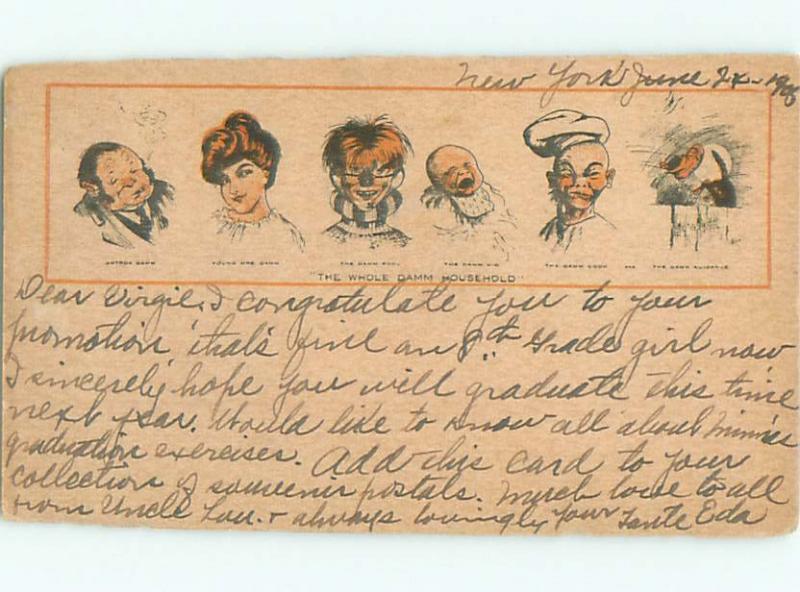 New York June 24-1906
OTTOS DAMM
YOUNG MRS. DAMM
THE DAMM FOOL
THE DAMM KID
THE DAMM COOK
AND
THE DAMM NUISANCE
"THE WHOLE DAMM HOUSEHOLD"
Dear Virgie, I congratulate you to your
promotion, that's fine an 8th Grade girl now
I sincerely hope you will graduate this time
next year. Would like to know all about Minnies
graduation exercises. Add this card to your
collection of souvenir postals. Much love to all
from Uncle Lou. + always lovingly your Tante Eda